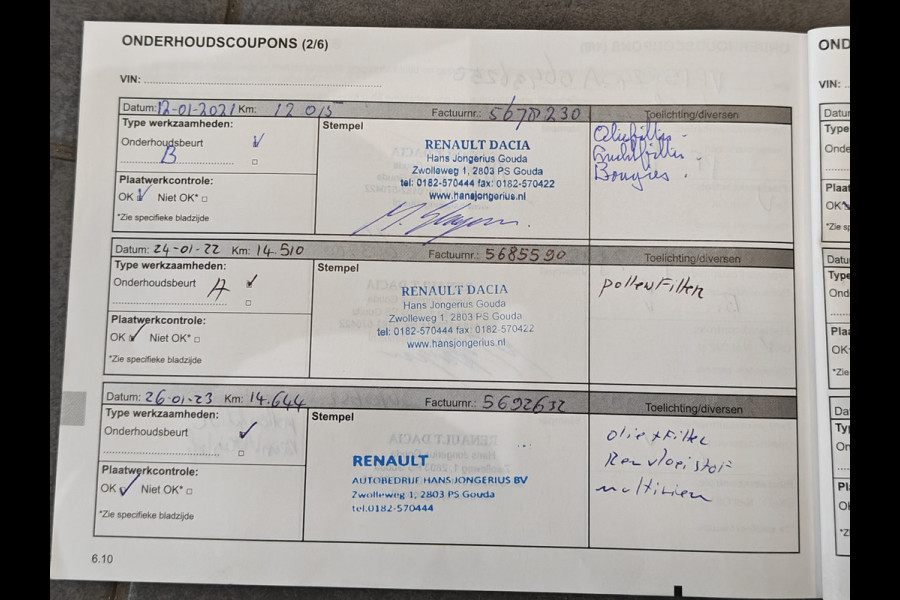 ONDERHOUDSCOUPONS (2/6)
VIN:
Datum: 12-01-2021 Km: 12 015 Factuurnr.: 5678230 Toelichting/diversen
Type werkzaamheden:
Onderhoudsbeurt
B
Plaatwerkcontrole:
OK Niet OK*
*Zie specifieke bladzijde
Stempel
RENAULT DACIA
Hans Jongerius Gouda
Zwolleweg 1, 2803 PS Gouda
tel: 0182-570444 fax: 0182-570422
www.hansjongerius.nl
Oliefilter
Luchtfilter
Bougies
Datum: 24-01-22 Km: 14.510 Factuurnr.: 5685590 Toelichting/diversen
Type werkzaamheden:
Onderhoudsbeurt
A
Plaatwerkcontrole:
OK Niet OK*
*Zie specifieke bladzijde
Stempel
RENAULT DACIA
Hans Jongerius Gouda
Zwolleweg 1, 2803 PS Gouda
tel: 0182-570444 fax: 0182-570422
www.hansjongerius.nl
pollenfilter
Datum: 26-01-23 Km: 14.644 Factuurnr.: 5692632 Toelichting/diversen
Type werkzaamheden:
Onderhoudsbeurt
Plaatwerkcontrole:
OK Niet OK*
*Zie specifieke bladzijde
Stempel
RENAULT
AUTOBEDRIJF HANS JONGERIUS BV
Zwolleweg 1, 2803 PS Gouda
tel.0182-570444
olie+filter
Remvloeistof
multiriem
6.10